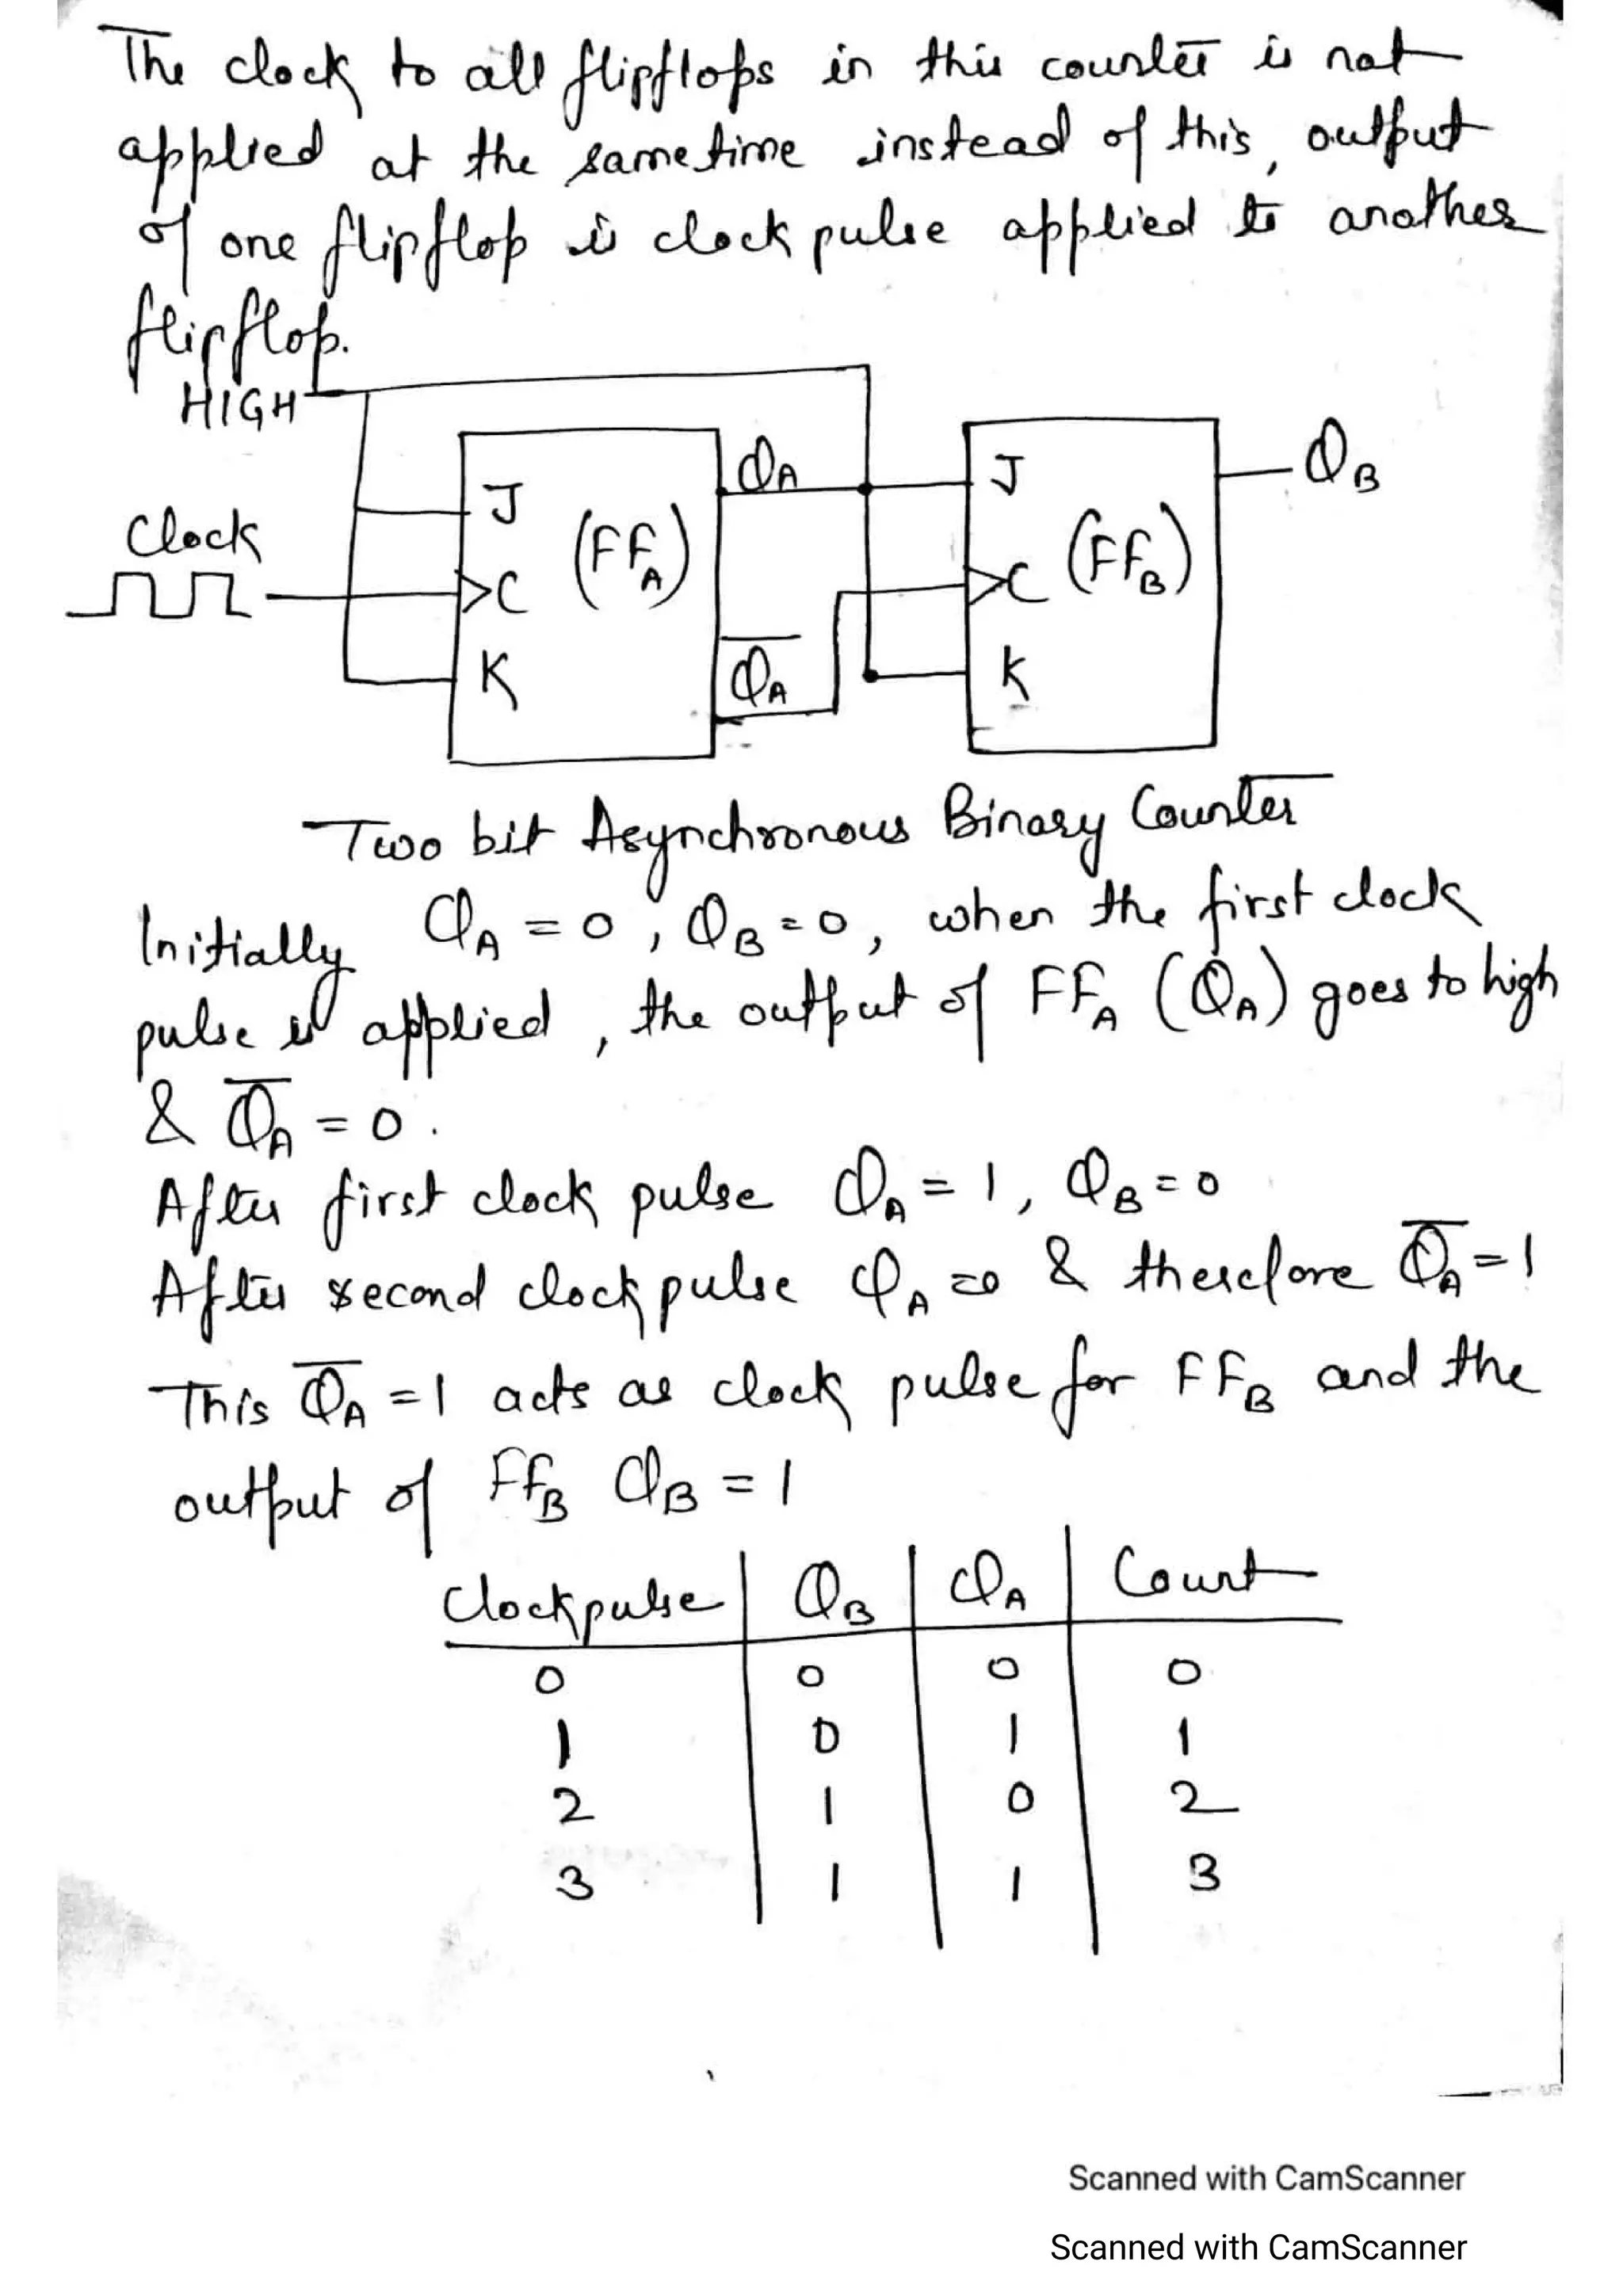 The clock to all flipflops in this counter is not
applied at the same time instead of this, output
of one flipflop is clock pulse applied to another
flipflop.
HIGH
Clock
J
C
K
(FFA)
QA
Q̅A
J
C
K
(FFB)
QB
Two bit Asynchronous Binary Counter
Initially QA = 0, QB = 0, when the first clock
pulse is applied, the output of FFA (QA) goes to high
& Q̅A = 0.
After first clock pulse QA = 1, QB = 0
After second clock pulse QA = 0 & therefore Q̅A = 1
This Q̅A = 1 acts as clock pulse for FFB and the
output of FFB QB = 1
Clockpulse QB QA Count
0 0 0 0
1 0 1 1
2 1 0 2
3 1 1 3
Scanned with CamScanner
Scanned with CamScanner